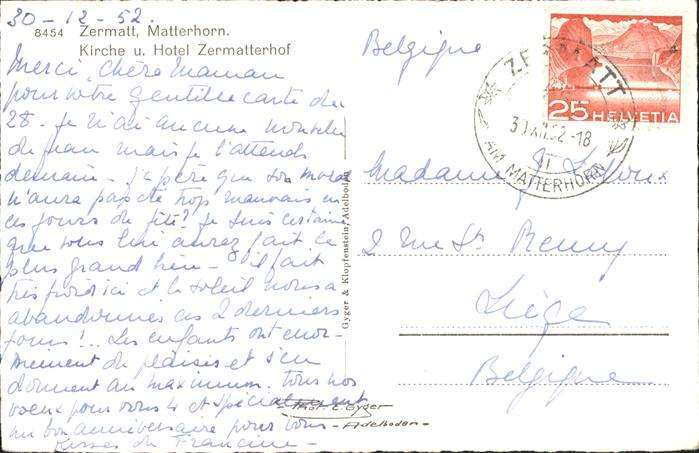 30-12-52.
8454 Zermatt, Matterhorn.
Kirche u. Hotel Zermatterhof
Merci, chère Maman
pour votre gentille carte du
28. Je n'ai aucune nouvelle
de Jean mais je l'attends
demain - j'espère que son moral
n'aura pas été trop mauvais en
ces jours de fête? Je suis certaine
que vous lui aurez fait le
plus grand bien - il fait
très froid ici et le soleil nous a
abandonnés ces 2 derniers
jours!... Les enfants ont énor-
mément de plaisir et s'en
donnent au maximum. Tous nos
voeux pour vous 4 et spécialement
un bon anniversaire pour vous -
Kisses de Francine -
Gyger & Klopfenstein, Adelboden
Phot. E. Gyger
- Adelboden -
Belgique
ZERMATT
30.XII.52-18
AM MATTERHORN
25 HELVETIA
Madame J.
2 rue St Remy
Liège
Belgique